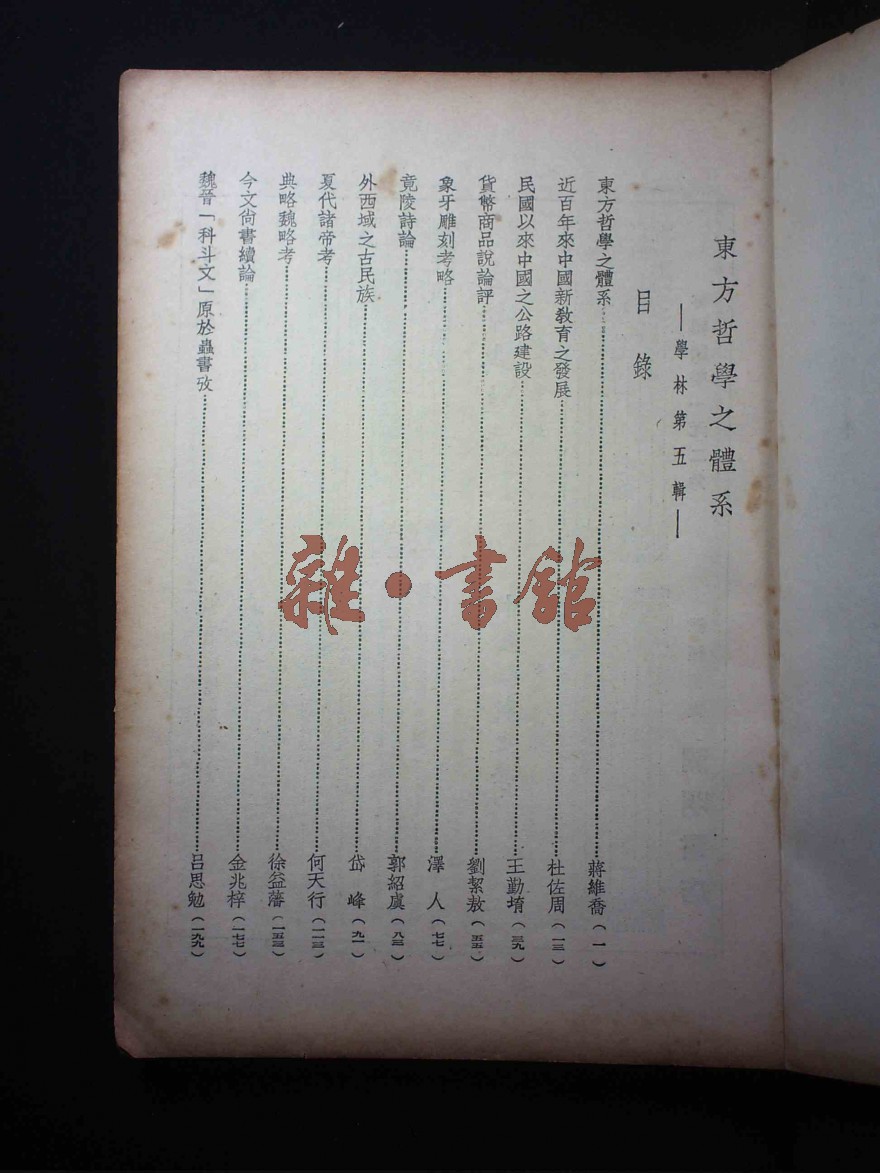 東方哲學之體系
—學林第五輯—
目錄
東方哲學之體系……蔣維喬(一)
近百年來中國新教育之發展……杜佐周(一三)
民國以來中國之公路建設……王勤堉(三九)
貨幣商品說論評……劉絜敖(五五)
象牙雕刻考略……澤人(七七)
竟陵詩論……郭紹虞(八三)
外西域之古民族……岱峰(九一)
夏代諸帝考……何天行(一一三)
典略魏略考……徐益藩(一五三)
今文尚書續論……金兆梓(一七七)
魏晉「科斗文」原於蟲書攷……呂思勉(一九九)
雜·書館